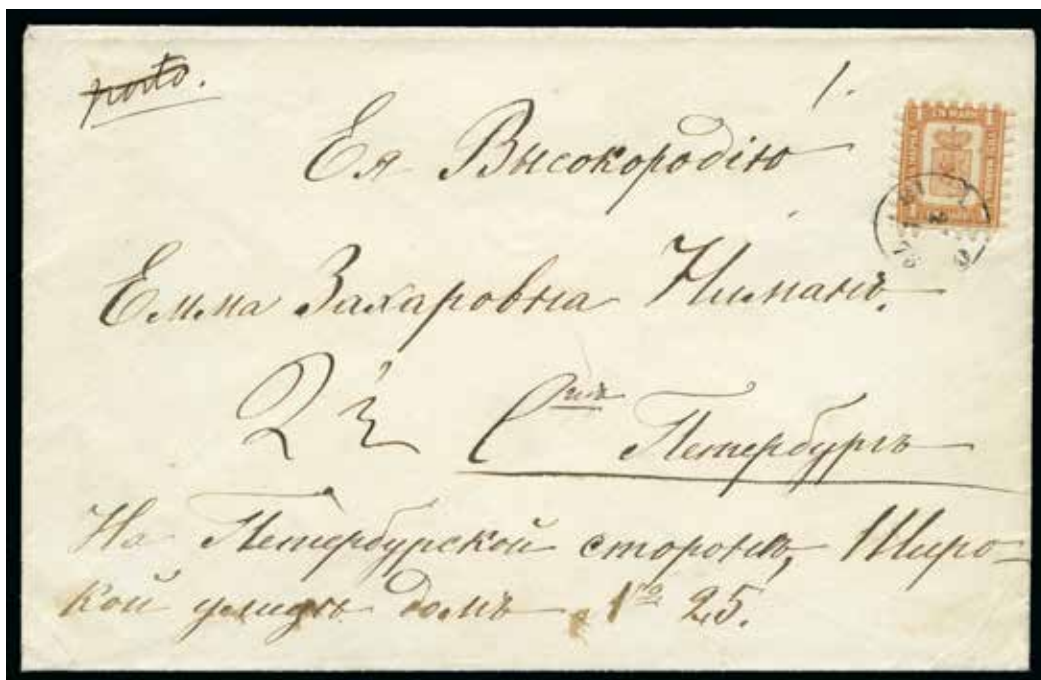 porto.
1.
Ея Высокородію
Емма Захаровна Ниманъ.
С Петербургъ
На Петербурской сторонѣ, Широ-
кой улицѣ домъ №25.